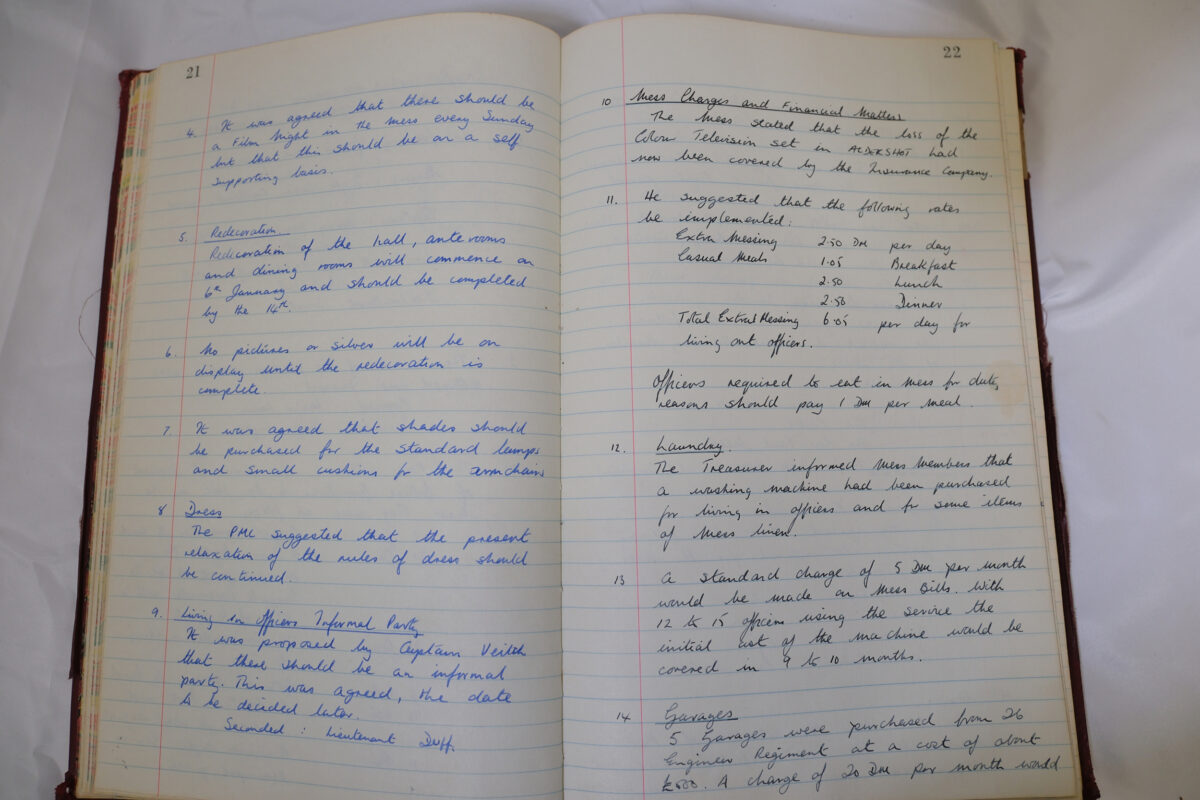 21
4. It was agreed that there should be
a Film Night in the Mess every Sunday
but that this should be on a self
supporting basis.
5. Redecoration.
Redecoration of the hall, ante rooms
and dining rooms will commence on
6th January and should be completed
by the 14th.
6. No pictures or silver will be on
display until the redecoration is
complete.
7. It was agreed that shades should
be purchased for the standard lamps
and small cushions for the armchairs
8 Dress
The PMC suggested that the present
relaxation of the rules of dress should
be continued.
9. Living in Officers Informal Party
It was proposed by Captain Veitch
that there should be an informal
party. This was agreed, the date
to be decided later.
Seconded : Lieutenant Duff.
22
10 Mess Charges and Financial Matters
The Mess stated that the loss of the
Colour Television set in ALDERSHOT had
now been covered by the Insurance Company.
11. He suggested that the following rates
be implemented:
Extra Messing 2.50 DM per day
Casual Meals 1.05 Breakfast
2.50 Lunch
2.50 Dinner
Total Extra Messing 6.05 per day for
living out officers.
Officers required to eat in mess for duty
reasons should pay 1 DM per meal.
12. Laundry.
The Treasurer informed Mess Members that
a washing machine had been purchased
for living in officers and for some items
of Mess linen.
13 A standard charge of 5 DM per month
would be made on Mess Bills. With
12 to 15 officers using the service the
initial cost of the machine would be
covered in 9 to 10 months.
14 Garages
5 Garages were purchased from 26
Engineer Regiment at a cost of about
A charge of 20 DM per month would